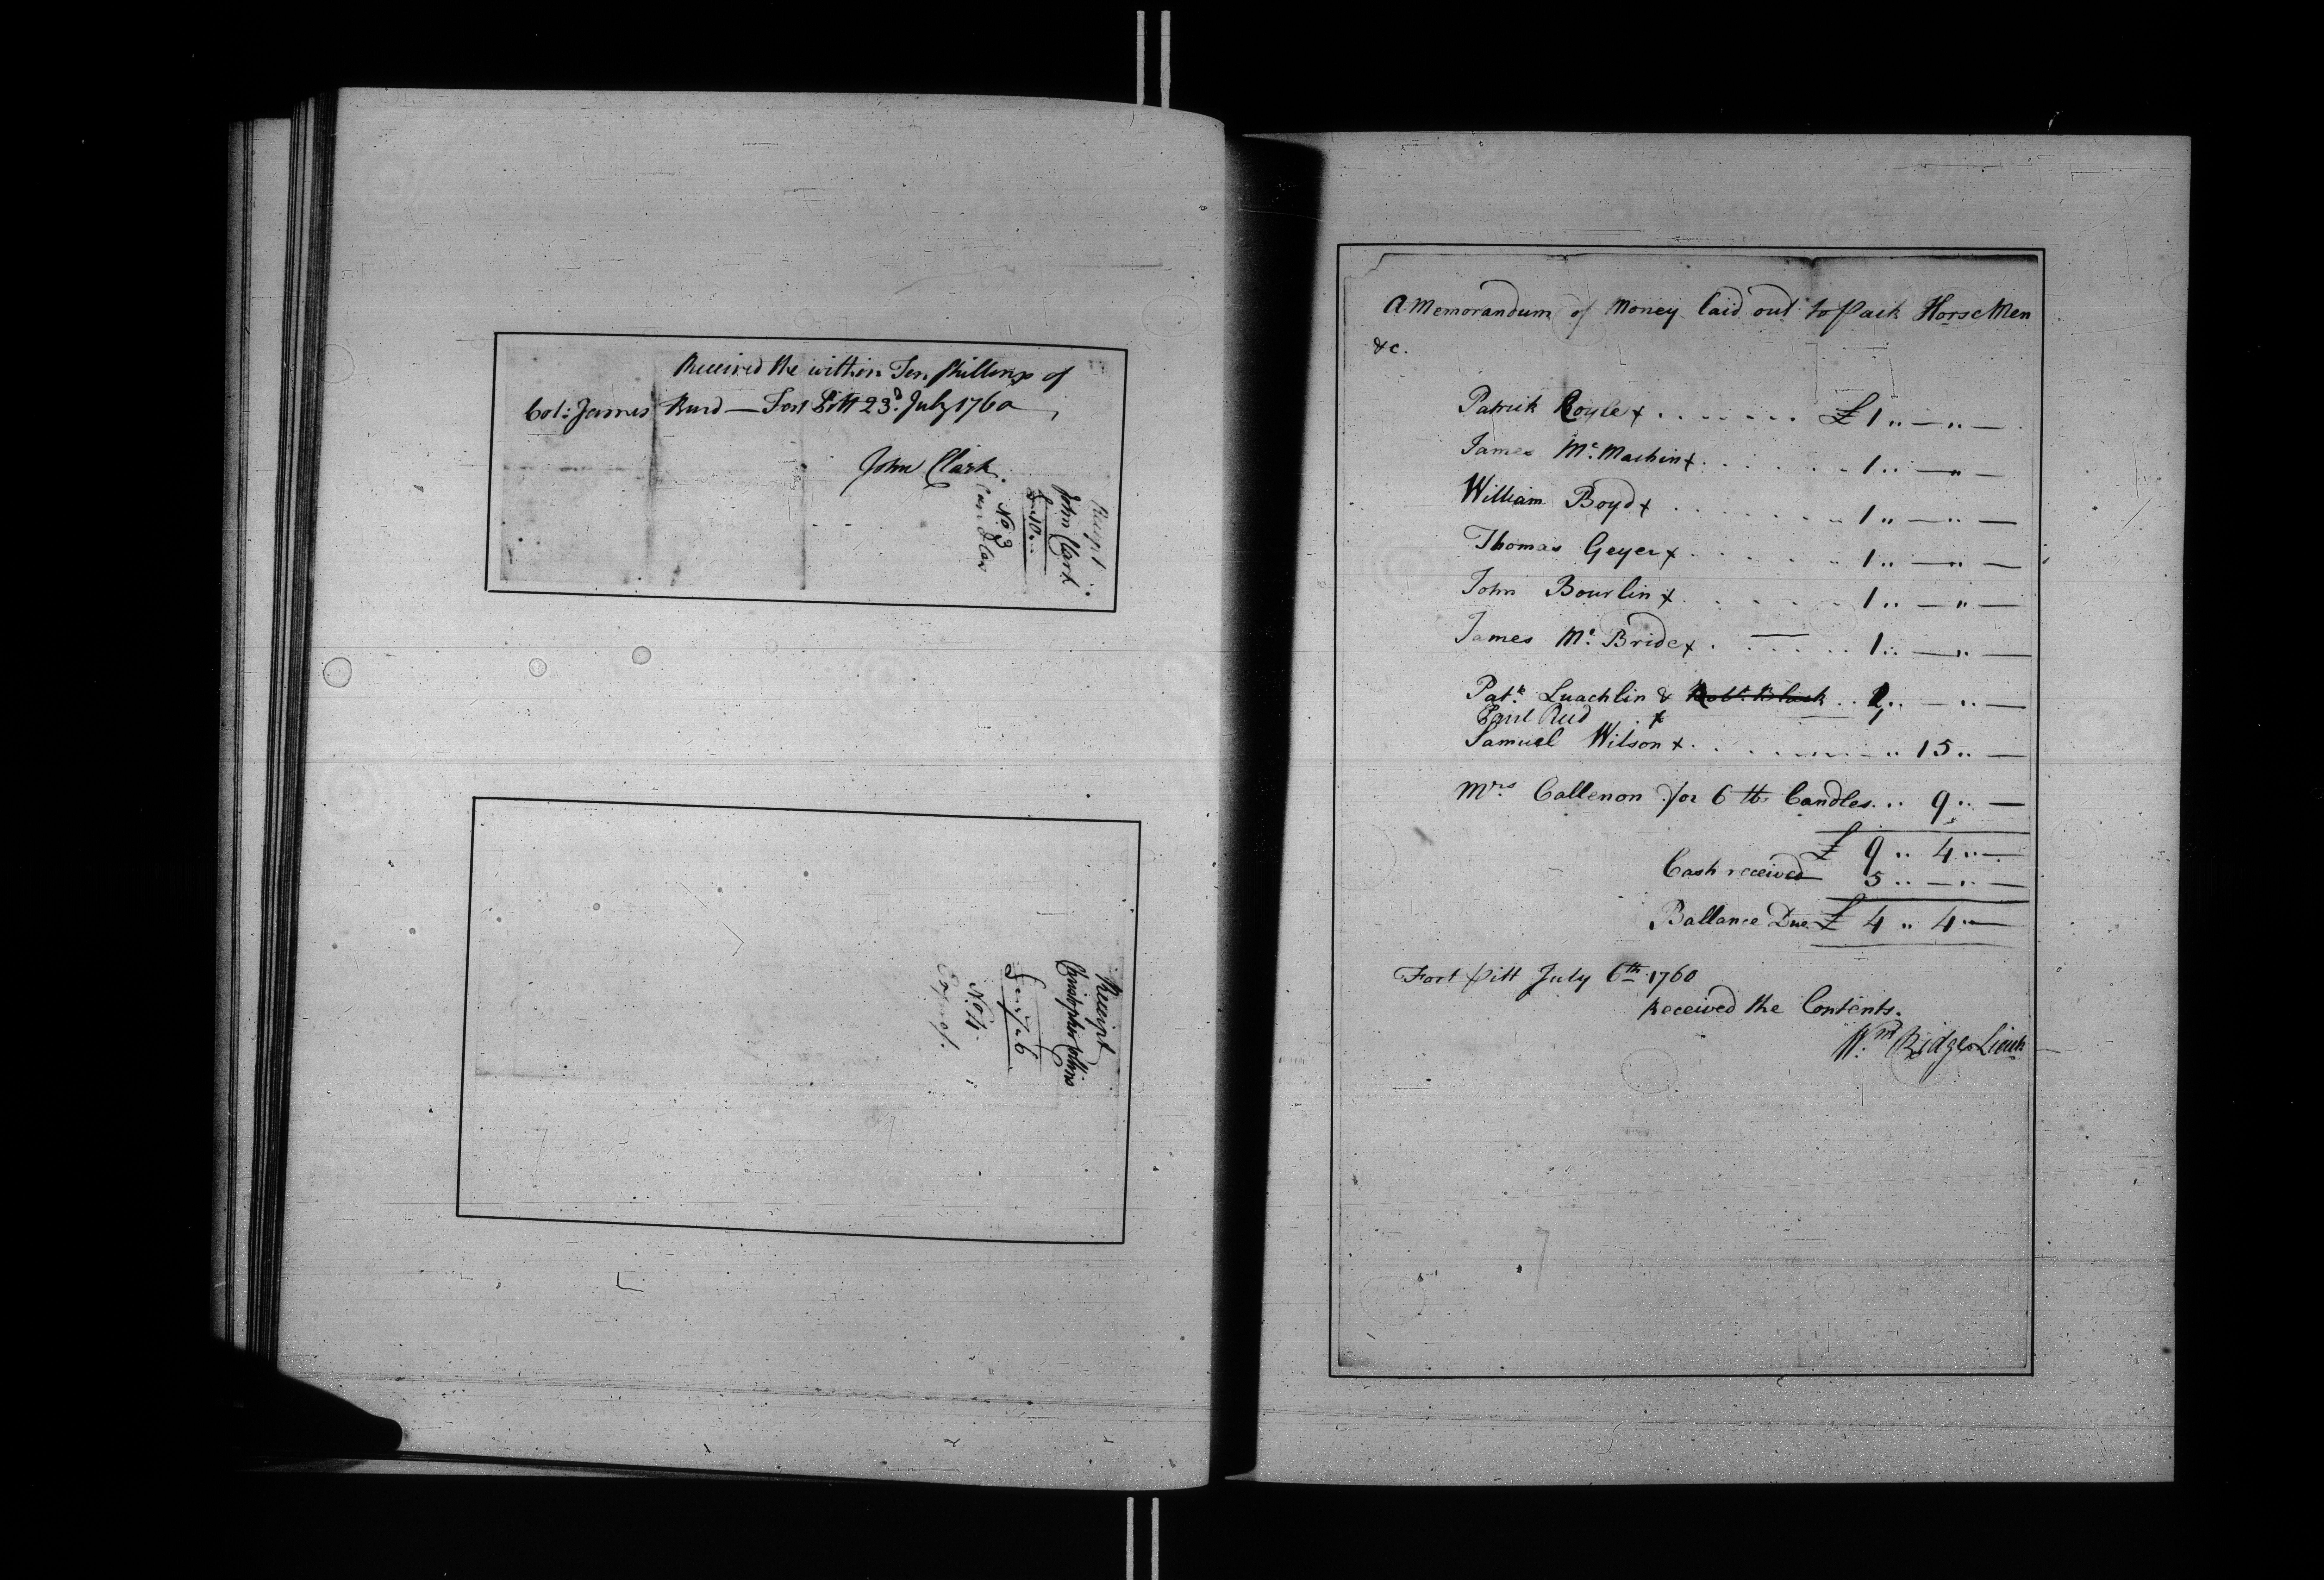 Received the within Ten Shillings of
Col: James Burd — Fort Pitt 23d. July 1760
John Clark
Receipt
John Clark
£ " 10 " —
No. 3
Candles
Receipt
Christopher Collins
£ " 7 " 6
No. 4
A Memorandum of Money laid out to Pack Horse Men
&c.
Patrick Boyle + . . . . . . . £ 1 " — " —
James Mc. Machin + . . . . . . 1 " — " —
William Boyd + . . . . . . . 1 " — " —
Thomas Geyer + . . . . . 1 " — " —
John Bourlin + . . . . . 1 " — " —
James Mc. Bride + . . . . . 1 " — " —
Patk. Luachlin & Robt. Black . . 1 " — " —
Paul Reed +
Samuel Wilson + . . . . . . . " 15 " —
Mrs. Callenon for 6 lb Candles . . . 9 " —
£ 9 " 4 " —
Cash received 5 " — " —
Ballance Due £ 4 " 4 " —
Fort Pitt July 6th. 1760
Received the Contents.
Wm. Ridge Lieut